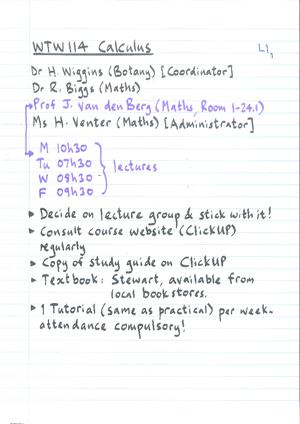 WTW114 Calculus
L1,
Dr H. Wiggins (Botany) [Coordinator]
Dr R. Biggs (Maths)
Prof J. van den Berg (Maths, Room 1-24.1)
Ms H. Venter (Maths) [Administrator]
M 10h30
Tu 07h30
W 08h30
F 09h30
lectures
Decide on lecture group & stick with it!
Consult course website (ClickUP)
regularly
Copy of study guide on ClickUP
Textbook: Stewart, available from
local bookstores.
1 Tutorial (same as practical) per week.
attendance compulsory!